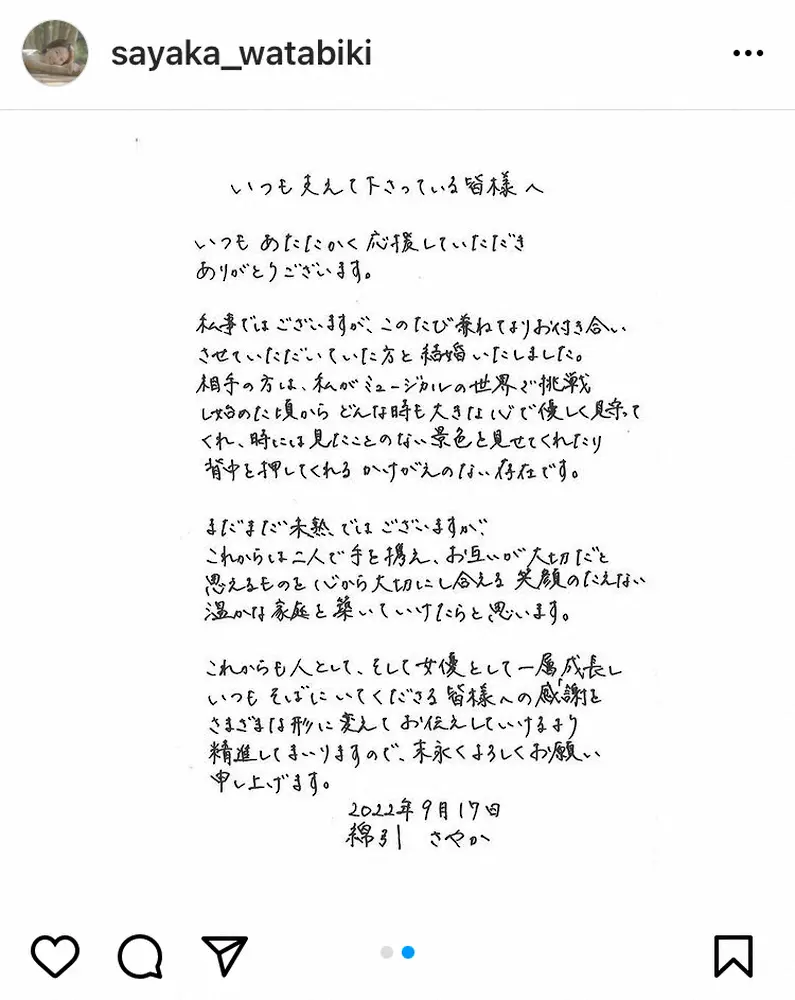 sayaka_watabiki
いつも支えて下さっている皆様へ
いつも あたたかく 応援していただき
ありがとうございます。
私事ではございますが、このたび兼ねてよりお付き合い
させていただいていた方と 結婚いたしました。
相手の方は、私がミュージカルの世界で挑戦
し始めた頃から どんな時も大きな心で優しく見守って
くれ、時には見たことのない景色を見せてくれたり
背中を押してくれる かけがえのない存在です。
まだまだ未熟ではございますが、
これからは二人で手を携え、お互いが大切だと
思えるものを心から大切にし合える 笑顔のたえない
温かな家庭を築いていけたらと思います。
これからも人として、そして女優として一層成長し
いつも そばに いてくださる 皆様への感謝を
さまざまな形に変えて お伝えしていけるよう
精進してまいりますので、末永くよろしくお願い
申し上げます。
2022年9月17日
綿引 さやか